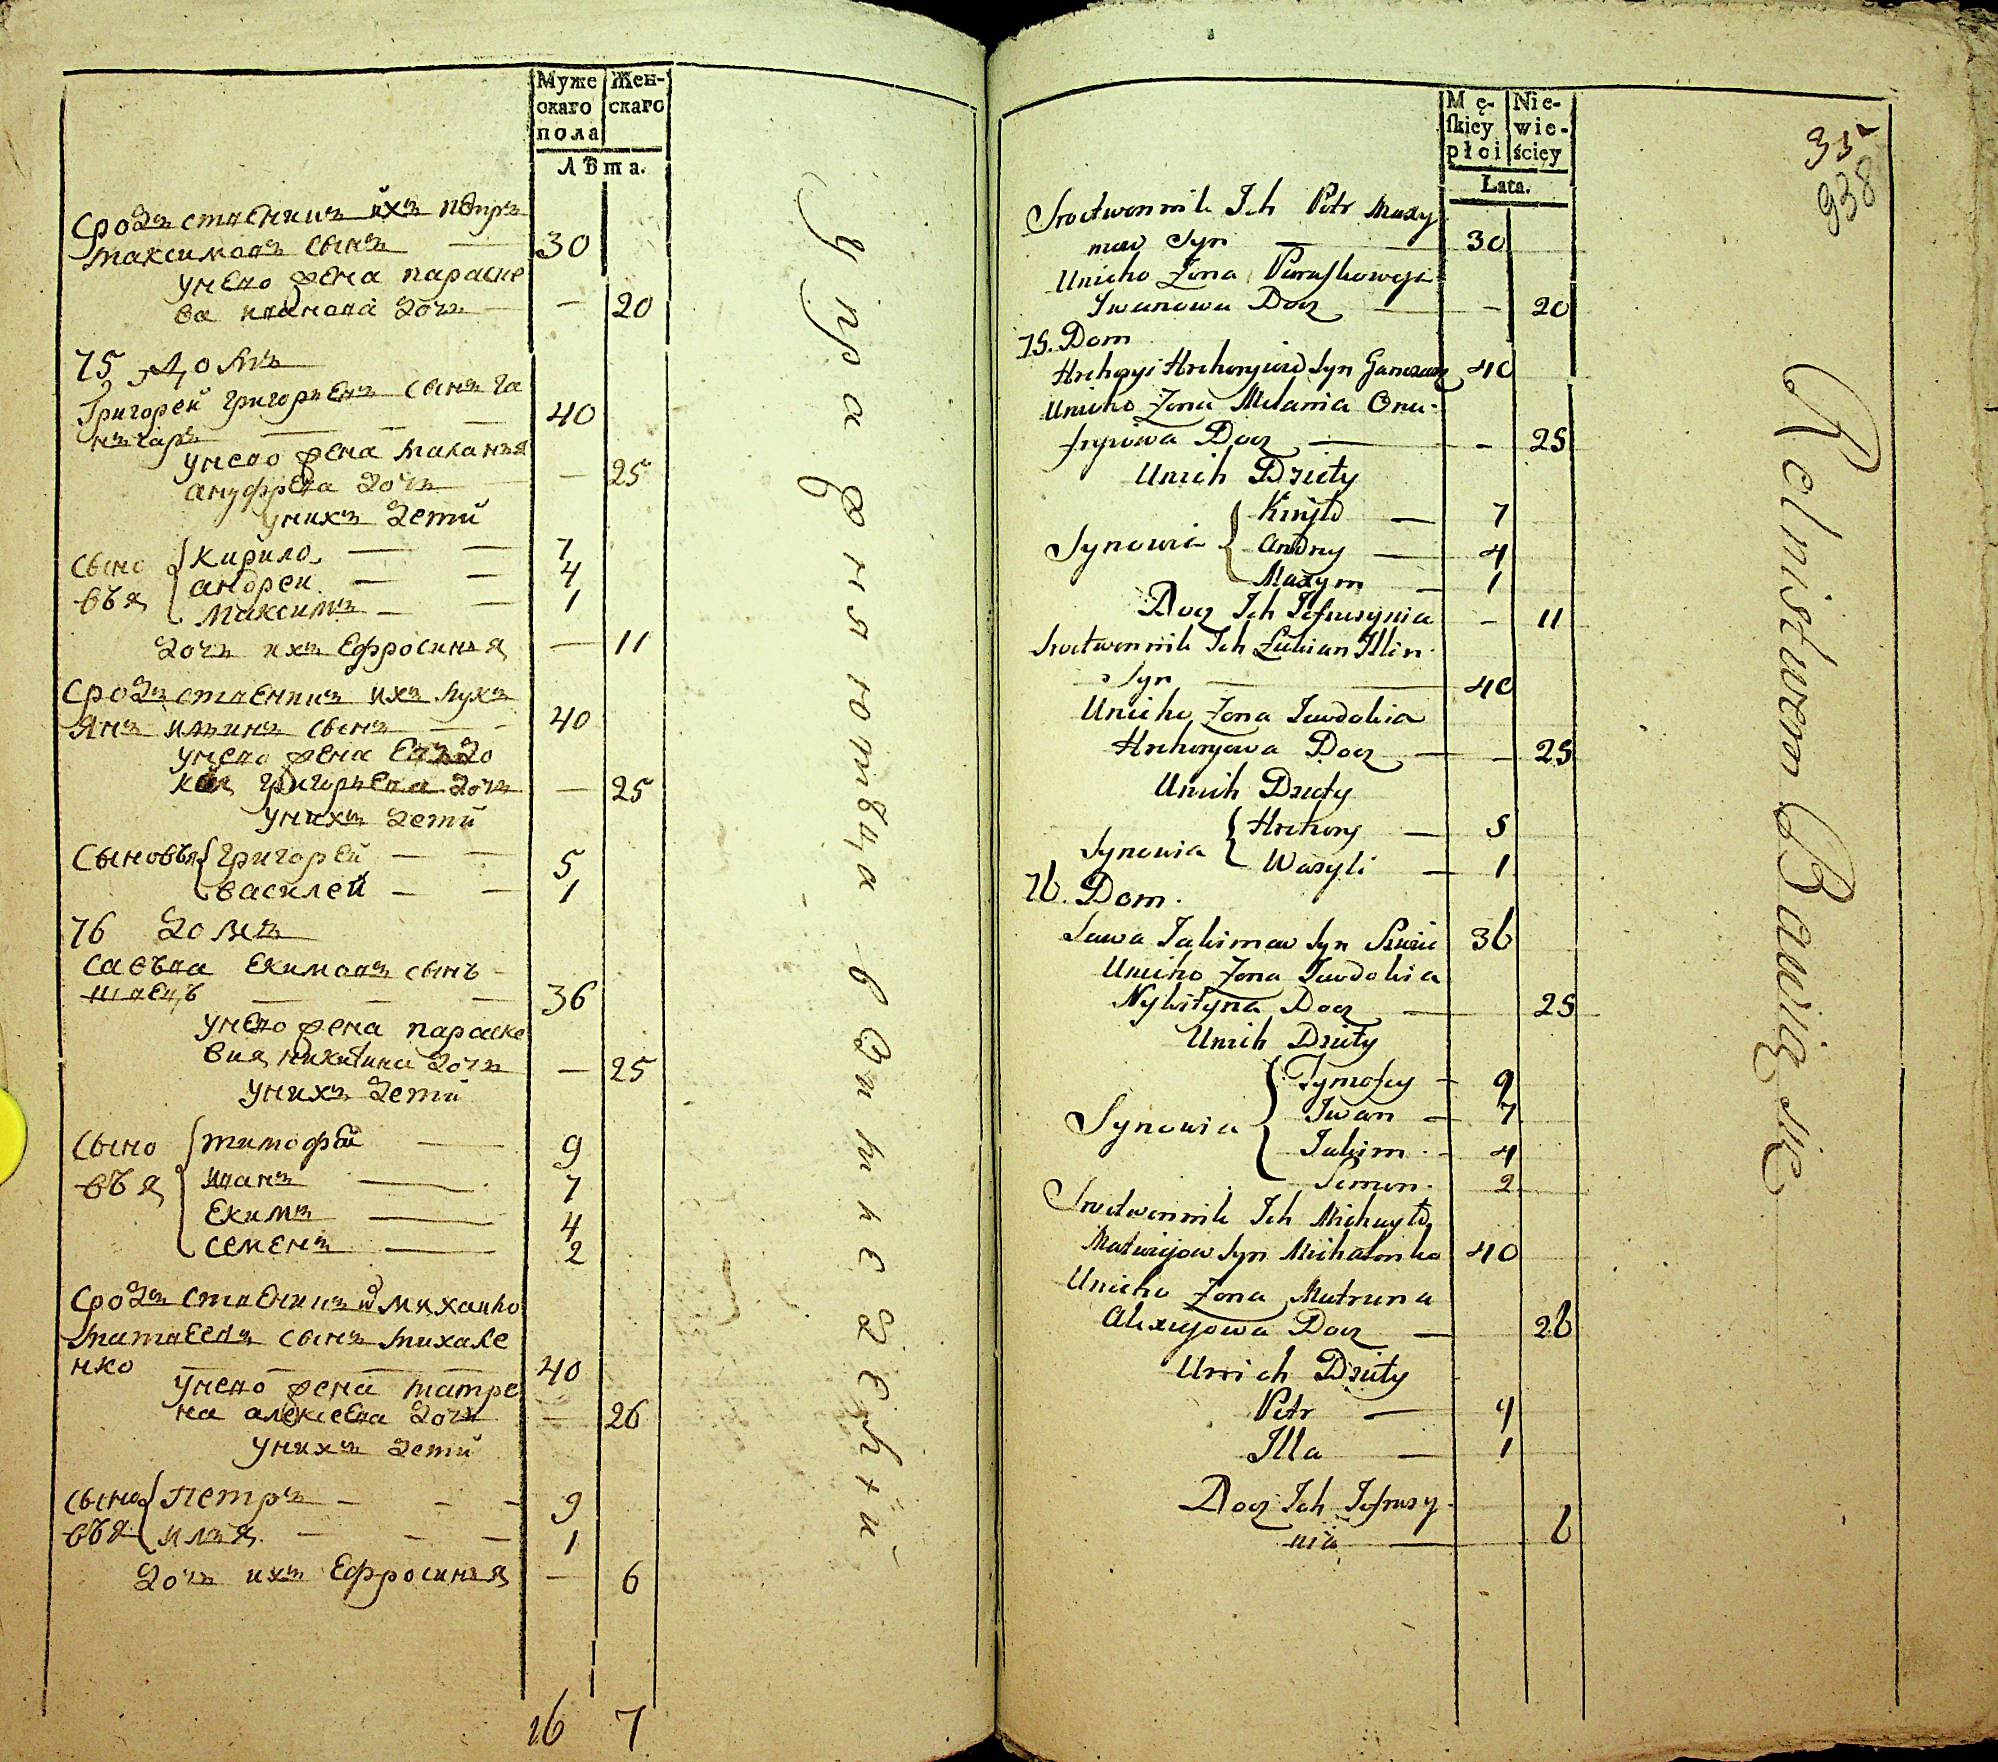 Муже
скаго
пола
Жен-
скаго
Лѣта.
Сродственикъ ихъ петръ
максимовъ сынъ — 30
унево жена параске
ва иванова дочь — 20
75 Домъ
Григорей григорьевъ сынъ га
нчаръ — 40
унево жена маланья
ануфрева дочь — 25
унихъ дети
сыно кирило — 7
андреи — 4
вья максимъ — 1
дочь ихъ Ефросинья — 11
сродственникъ ихъ лукъ
янъ ильинъ сынъ — 40
унево жена Евдо
кея григорьева дочь — 25
унихъ дети
Сыновья григорей — 5
василей — 1
76 домъ
савъва Екимовъ сынъ
швецъ — 36
унево жена параске
вия никитина дочь — 25
унихъ дети
сыно тимофей — 9
вья иванъ — 7
Екимъ — 4
семенъ — 2
сродственикъ михайло
матвеевъ сынъ михале
нко — 40
унево жена матре
на алексеева дочь — 26
унихъ дети
сыно петръ — 9
вья илья — 1
дочь ихъ Ефросинья — 6
16 7
упражняютца в
Mę-
skiey
płci
Nie-
wie-
ściey
Lata.
35
938
Srodtwennik Ich Petr Maxy
mow Syn — 30
Unieho Zona Paraskoweja
Iwanowa Docz — 20
75. Dom
Hrehoryi Hrehoryiow Syn Ganczarz 40
Unieho Zona Melania Onu-
fryiowa Docz — 25
Unich Dziety
Kiryło — 7
Synowia Andry — 4
Maxym — 1
Docz Ich Jefrosynia — 11
Srodtwennik Ich Łukian Illin
Syn — 40
Unieho Zona Jewdokia
Hrehoryowa Docz — 25
Unich Dziety
Hrehory — 5
Synowia Wasyli — 1
76. Dom.
Sawa Jakimow Syn Szwiec 36
Unieho Zona Jewdokia
Nykityna Docz — 25
Unich Dziety
Tymofiey — 9
Iwan — 7
Synowia Jakim — 4
Semen. 2
Srodtwennik Ich Michayło
Matwiejow Syn Michalenko 40
Unieho Zona Matruna
Alexiejowa Docz — 26
Unich Dziety
Petr — 9
Illa — 1
Docz Ich Jefrosy
nia — 6
Rolnistwem Bawią się